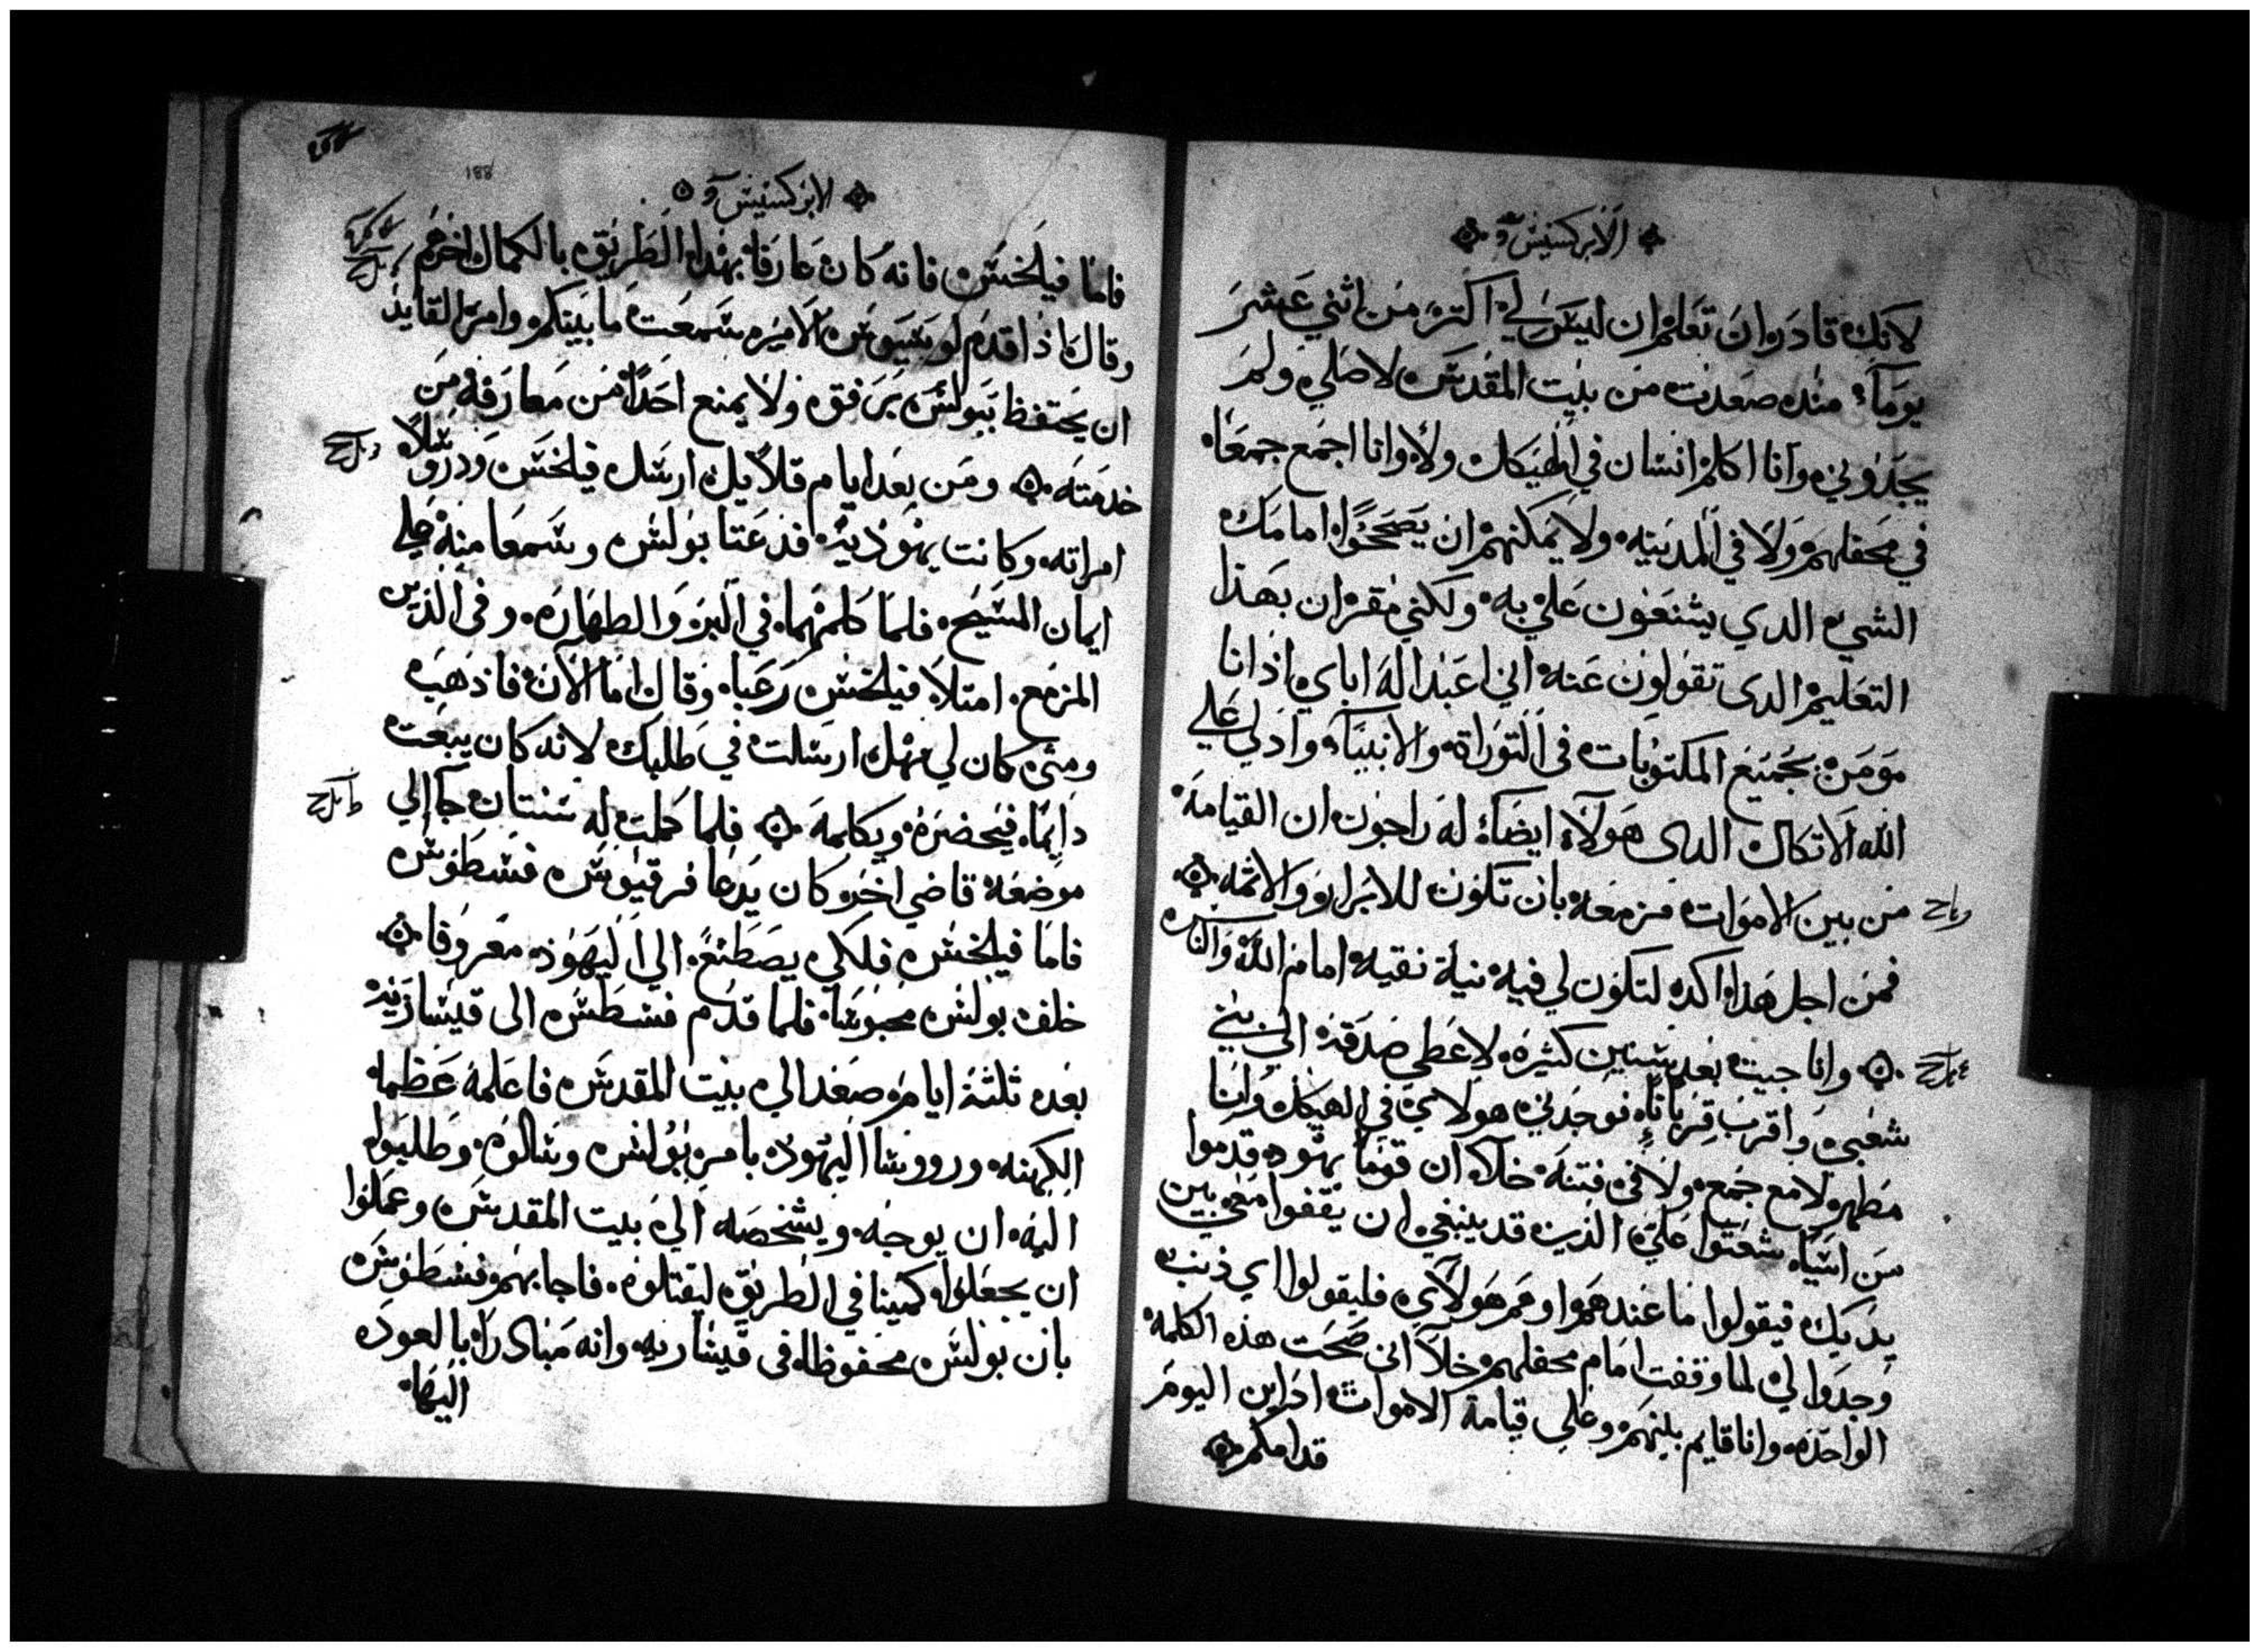 الابركسيس
لانك قادر ان تعلم ان ليس لي اكتر من اثني عشر
يوماً منذ صعدت من بيت المقدس لاصلي ولم
يجدوني وانا اكلم انسان في الهيكل ولا وانا اجمع جمعاً
في محفلهم ولا في المدينه ولا يمكنهم ان يصححوا امامك
الشي الدي يشنعون علي به ولكني مقر ان بهذا
التعليم الدى تقولون عنه اني اعبد اله اباي اذ انا
مومن بجميع المكتوبات في التوراة والانبيآ واذ لي علي
الله الاتكال الدى هولآ ايضاً له راجون ان القيامة
من بين الاموات مزمعه بان تكون للابرار والاثمه
فمن اجل هذا اكد لتكون لي فيه نية نقيه امام الله والناس
وانا جيت بعد سنين كثيرة لاعطي صدقة الي بني
شعبي واقرب قرباناً فوجدني هولاي في الهيكل وانا
مطهر لا مع جمع ولا في فتنة خلا ان قوماً يهود قدموا
من اسيا شغتوا علي الذين قد ينبغي ان يقفوا معي بين
يديك فيقولوا ما عندهم او هم هولاي فليقولوا اي ذنب
وجدوا لي لما وقفت امام محفلهم خلا اني صحت هذه الكلمة
الواحده وانا قايم بينهم وعلي قيامة الاموات ادا ين اليوم
قدامكم
188
الابركسيس
فاما فيلخس فانه كان عارفا بهذا الطريق بالكمال اخرهم
وقال اذا قدم لوسيوس الامير سمعت ما بينكم وامر القايد
ان يحتفظ ببولس برفق ولا يمنع احداً من معارفه من
خدمته ومن بعد ايام قلايل ارسل فيلخس ودروسلا
امراته وكانت يهودية فدعتا بولس وسمعا منه علي
ايمان المسيح فلما كلمهما في البر والطهارة وفي الدين
المزمع امتلا فيلخس رعبا وقال اما الان فاذهب
ومتى كان لي مهل ارسلت في طلبك لانه كان يبعت
دايما فيحضرة ويكلمه فلما كملت له سنتان جآ الي
موضعه قاضي اخر كان يدعا فرقيوس فسطوس
فاما فيلخس فلكي يصطنع الي اليهود معروفا
خلف بولس محبوسا فلما قدم فسطس الى قيساريه
بعد ثلثة ايام صعد الي بيت المقدس فاعلمه عظما
الكهنه وروسا اليهود بامر بولس وسالوه وطلبوا
اليه ان يوجه ويشخصه الي بيت المقدس وعملوا
ان يجعلوا كمينا في الطريق ليقتلوه فاجابهم فسطوس
بان بولس محفوظا في قيساريه وانه مبادراً بالعوده
اليها